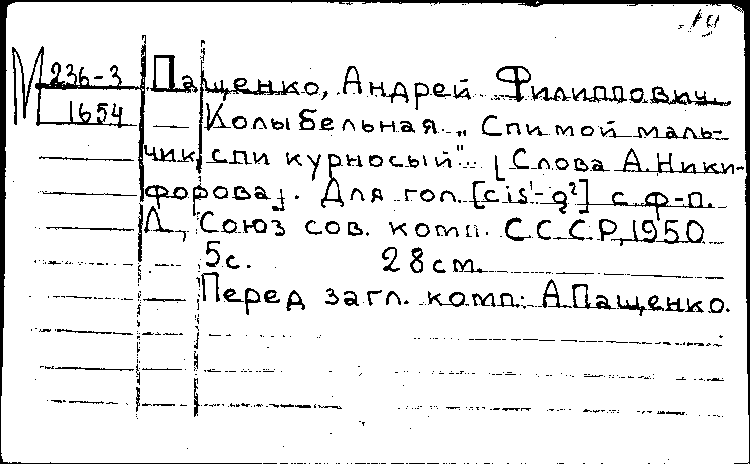 М 236-3 Пащенко, Андрей Филиппович.
1654 Колыбельная „Спи мой маль-
чик, спи курносый" [Слова А. Ники-
форова]. Для гол. [cis¹-g²] с ф-п.
Л., Союз сов. комп. СССР, 1950
5с. 28см.
Перед загл. комп: А.Пащенко.